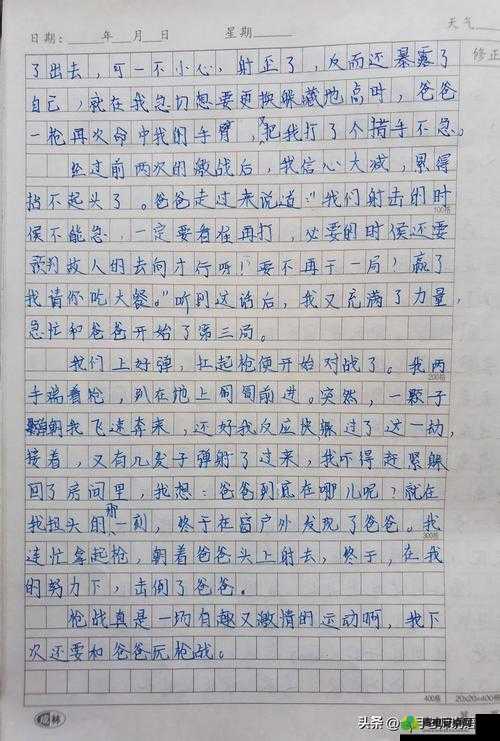 日期:　年　月　日　星期　天气
修正
了出去，可一不小心，射歪了，反而还暴露了
自己，就在我急切想要更换躲藏地点时，爸爸
一枪再次命中我的手臂，把我打了个措手不急。
经过前两次的激战后，我信心大减，累得
抬不起头了。爸爸走过来说道："我们射击的时
100格
侯不能急，一定要看准再打，必要的时侯还要
预判敌人的去向才行呀！要不再于一局？赢了
我请你吃大餐。"听到这话后，我又充满了力量，
急忙和爸爸开始了第三局。
我们上好弹，扛起枪便开始对战了。我两
200格
手端着枪，趴在地上匍匐前进。突然，一颗子
弹朝我飞速奔来，还好我反应快躲过了这一劫，
接着，又有几发子弹射了过来，我不得赶紧躲
回了房间里，我想：爸爸到底在哪儿呢？就在
我扭头的那一刻，终于在窗户外发现了爸爸。我
300格
连忙拿起枪，朝着爸爸头上射去，终于，在我
的努力下，击倒了爸爸。
枪战真是一场有趣又激情的运动啊，我下
次还要和爸爸玩枪战。
400格
20x20=400格
头条